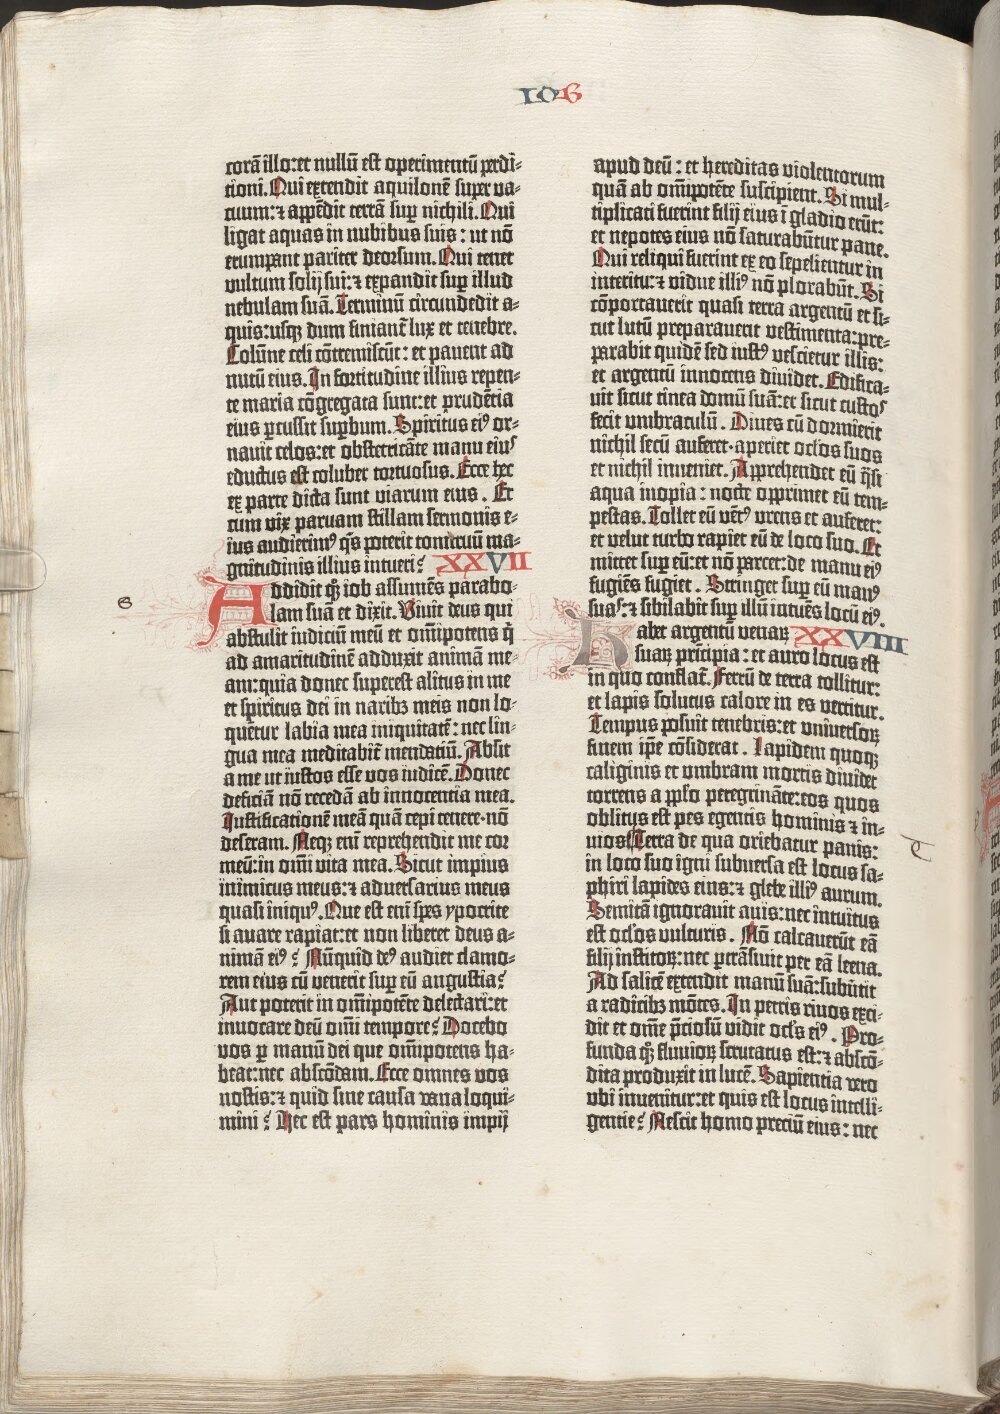 IOB
corā illo: et nullū est operimentū perdi-
tioni. Qui extendit aquilonē super va-
cuum: ⁊ appēdit terrā sup nichili. Qui
ligat aquas in nubibus suis: ut nō
erumpant pariter deorsum. Qui tenet
vultum solij sui: ⁊ expandit sup illud
nebulam suā. Terminū circundedit a-
quis: usqꝫ dum finianť lux et tenebre.
Colūne celi cōtremiscūt: et pavent ad
nutū eius. In fortitudine illius repen-
te maria cōgregata sunt: et prudētia
eius ꝑcussit supbum. Spiritus eiꝰ or-
navit celos: et obstetricāte manu eiuˢ
eductus est coluber tortuosus. Ecce hec
ex parte dicta sunt viarum eius. Et
cum vix parvam stillam sermonis e-
ius audierimꝰ q̄s poterit tonitruū ma-
gnitudinis illius intueri? XXVII
Addidit q̄ꝫ iob assumēs parabo-
lam suā et dixit. Vivit deus qui
abstulit iudiciū meū et omīpotens q̄
ad amaritudinē adduxit animā me-
am: quia donec superest alitus in me
et spiritus dei in naribꝫ meis non lo-
quētur labia mea iniquitatē: nec lin-
gua mea meditabiť mendatiū. Absit
a me ut iustos esse vos iudicē. Donec
deficiā nō recedā ab innocentia mea.
Iustificationē meā quā cepi tenere· nō
deseram. Neqꝫ enī reprehendit me cor
meū: in omī vita mea. Sicut impius
inimicus meus: ⁊ adversarius meus
quasi iniquꝰ. Que est enī spēs ypocrite
si avare rapiat: et non liberet deus a-
nimā eiꝰ? Nūquid deꝰ audiet clamo-
rem eius cū venerit sup eū angustia?
Aut poterit in omīpotēte delectari: et
invocare deū omī tempore? Docebo
vos ꝑ manū dei que omīpotens ha-
beat: nec abscōdam. Ecce omnes vos
nostis: ⁊ quid sine causa vana loqui-
mini? Hec est pars hominis impij
apud deū: et hereditas violentorum
quā ab omīpotēte suscipient. Si mul-
tiplicati fuerint filij eius ī gladio erūt:
et nepotes eius nō saturabūtur pane.
Qui reliqui fuerint ex eo sepelientur in
interitu: ⁊ vidue illiꝰ nō plorabūt. Si
cōportaverit quasi terra argentū et si-
cut lutū preparaverit vestimenta: pre-
parabit quidē sed iustꝰ vescietur illis:
et argentū innocens dividet. Edifica-
vit sicut tinea domū suā: et sicut custoˢ
fecit umbraculū. Dives cū dormierit
nichil secū auferet· aperiet oclos suos
et nichil inveniet. Apprehendet eū q̄si
aqua inopia: nocte opprimet eū tem-
pestas. Tollet eū vētꝰ urens et auferet:
et velut turbo rapiet eū de loco suo. Et
mittet sup eū: et nō parcet: de manu eiꝰ
fugiēs fugiet. Stringet sup eū manꝰ
suaˢ: ⁊ sibilabit sup illū intuēs locū eiꝰ.
Habet argentū venaꝝ XXVIII
suaꝝ prīcipia: et auro locus est
in quo conflať. Ferrū de terra tollitur:
et lapis solutus calore in es vertitur.
Tempus posuit tenebris: et universoꝝ
finem ipē cōsiderat. Lapidem quoqꝫ
caliginis et umbram mortis dividet
torrens a pplo peregrināte: eos quos
oblitus est pes egentis hominis ⁊ in-
vios Terra de qua oriebatur panis:
in loco suo igni subversa est locus sa-
phiri lapides eius: ⁊ glebe illiꝰ aurum.
Semitā ignoravit avis: nec intuitus
est oclos vulturis. Nō calcaverūt eā
filij institoꝝ: nec ꝑtrāsivit per eā leena.
Ad salicē extendit manū suā: subvertit
a radicibꝫ mōtes. In petris rivos exci-
dit et omē p̄ciosū vidit oclˢ eiꝰ. Pro-
funda q̄ꝫ fluvioꝝ scrutatus est: ⁊ abscō-
dita produxit in lucē. Sapientia vero
ubi invenitur: et quis est locus intelli-
gentie? Nescit homo preciū eius: nec